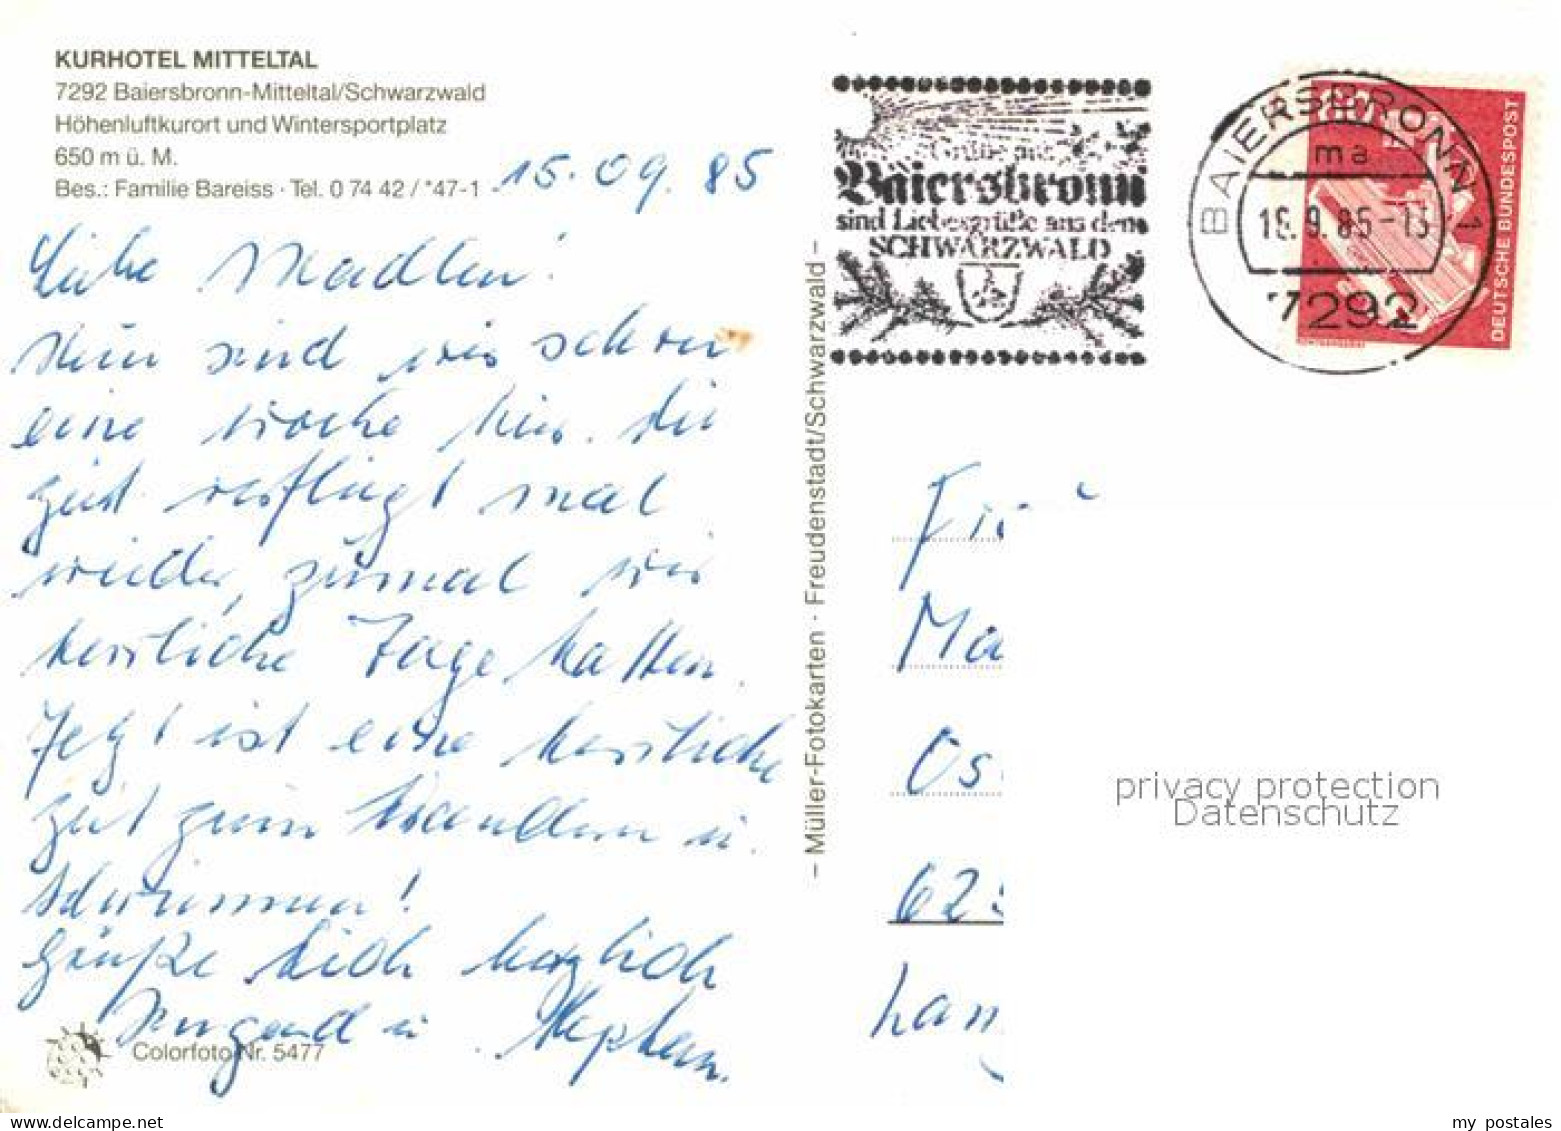 KURHOTEL MITTELTAL
7292 Baiersbronn-Mitteltal/Schwarzwald
Höhenluftkurort und Wintersportplatz
650 m ü. M.
Bes.: Familie Bareiss · Tel. 0 74 42 / *47-1
15.09.85
Liebe Madlen!
Nun sind wir schon
eine Woche hier. Die
Zeit verfliegt mal
wieder, zumal wir
herrliche Tage hatten.
Jetzt ist eine herrliche
Zeit zum Wandern u.
Schwimmen!
Grüße Dich herzlich
u.
Colorfoto Nr. 5477
– Müller-Fotokarten · Freudenstadt/Schwarzwald –
Grüße aus
Baiersbronn
sind Liebesgrüße aus dem
SCHWARZWALD
BAIERSBRONN 1
ma
9.85-13
7292
DEUTSCHE BUNDESPOST
Ma
Os
62
Lan
privacy protection
Datenschutz
my postales